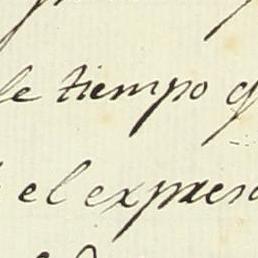 le tiempo q
el expres